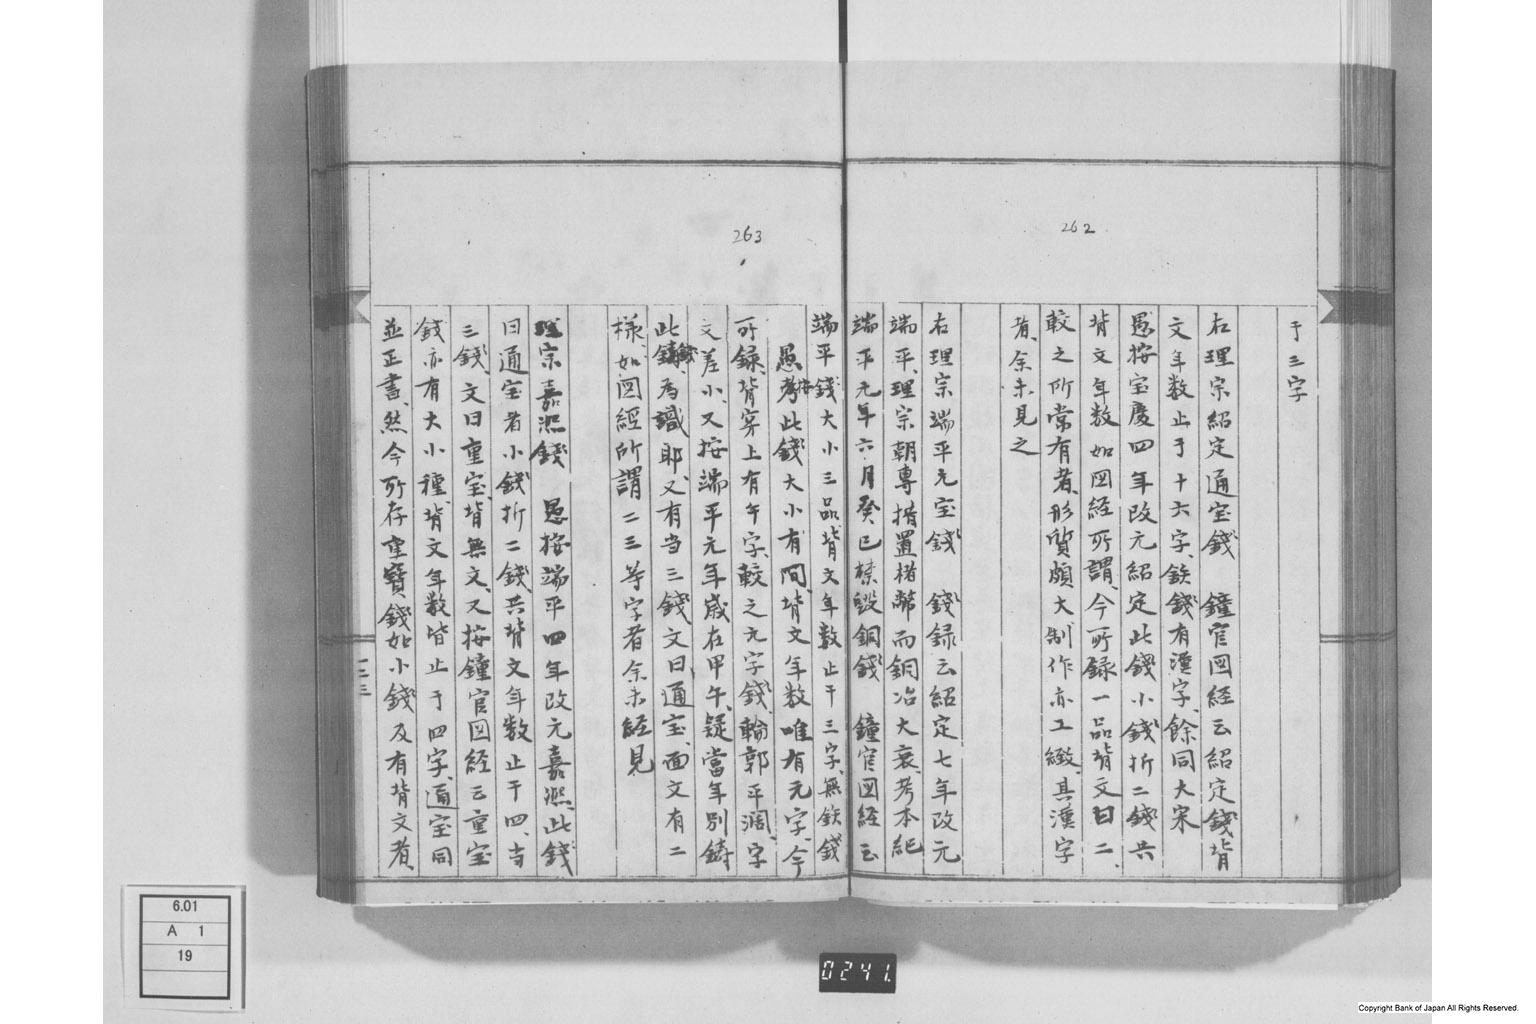 262
于三字
右理宗紹定通宝錢　鐘官図経云紹定錢背
文年数止于十六字、鉄錢有漢字、餘同大宋
愚按宝慶四年改元紹定此錢小錢折二錢共
背文年数如図経所謂、今所録一品背文曰二、
較之所常有者、形質頗大制作亦工緻、其漢字
者、余未見之
右理宗端平元宝錢　錢録云紹定七年改元
端平、理宗朝専措置楮幣而銅冶大衰、考本紀
端平元年六月癸巳禁毀銅錢　鐘官図経云
263
端平錢大小三品背文年数止于三字、無鉄錢
愚按考此錢大小有間、背文年数唯有元字、今
所録、背穿上有午字、較之元字錢、輪郭平濶、字
文差小、又按端平元年歳在甲午、疑當年別鋳
此錢為識耶、又有当三錢文曰通宝、面文有二
様、如図経所謂二三等字者余未経見
理宗嘉熙錢　愚按端平四年改元嘉熙、此錢
曰通宝者小錢折二錢、共背文年数止于四、当
三錢、文曰重宝、背無文、又按鐘官図経云重宝
錢亦有大小種、背文年数皆止于四字、通宝同
並正書、然今所存重寶錢如小錢及有背文者、
二三
6.01
A 1
19
0241.
Copyright Bank of Japan All Rights Reserved.